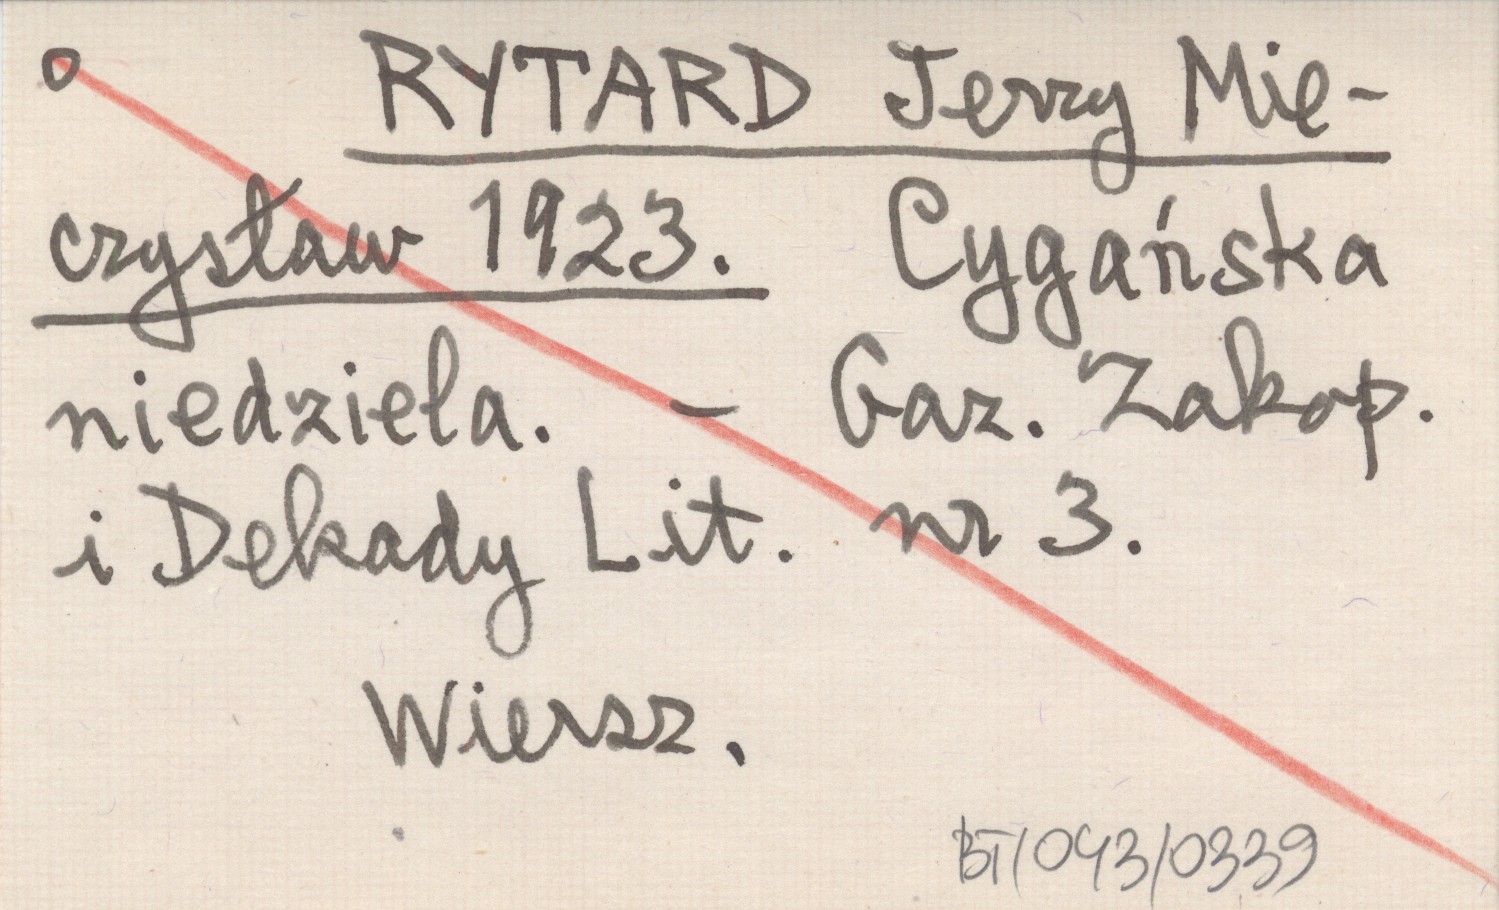 o RYTARD Jerzy Mie-
czysław 1923. Cygańska
niedziela. – Gaz. Zakop.
i Dekady Lit. nr 3.
Wiersz.
BT/043/0339